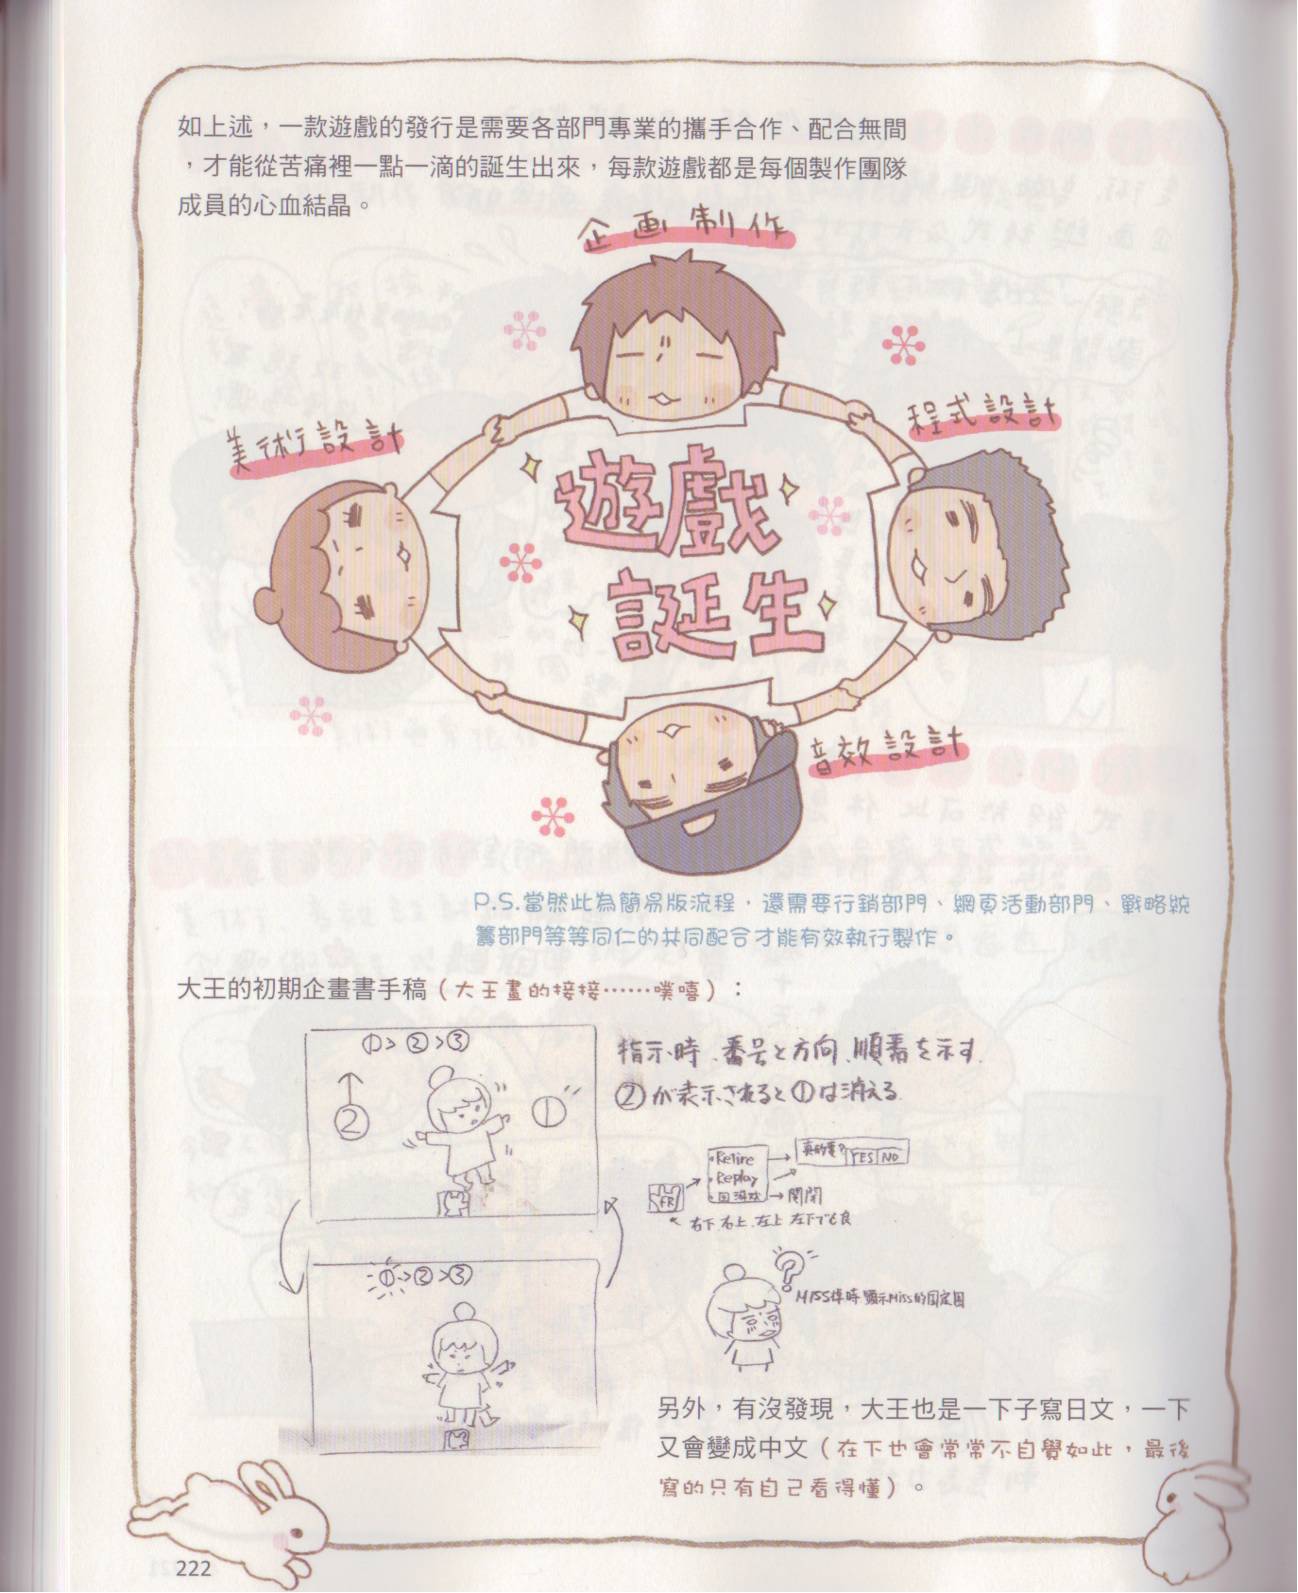 如上述，一款遊戲的發行是需要各部門專業的攜手合作、配合無間
，才能從苦痛裡一點一滴的誕生出來，每款遊戲都是每個製作團隊
成員的心血結晶。
企画制作
程式設計
美術設計
遊戲
誕生
音效設計
P.S.當然此為簡易版流程，還需要行銷部門、網頁活動部門、戰略統
籌部門等等同仁的共同配合才能有效執行製作。
大王的初期企畫書手稿（大王畫的接接……噗嘻）：
①>②>③
②
①
指示時、番号と方向、順番を示す.
②が表示されると①は消える.
・Retire
・Replay
・回遊戏
真的要?
YES NO
FR
関閉
右下.右上.左上 左下でも良
①>②>③
?
MISS律時 顯示Miss的固定圖
另外，有沒發現，大王也是一下子寫日文，一下
又會變成中文（在下也會常常不自覺如此，最後
寫的只有自己看得懂）。
222